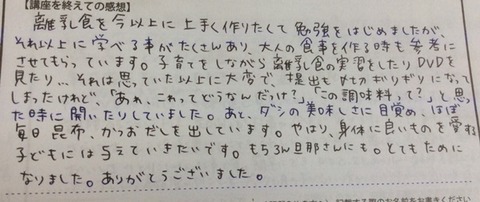 【講座を終えての感想】
離乳食を今以上に上手く作りたくて勉強をはじめましたが、
それ以上に学べる事がたくさんあり、大人の食事を作る時も参考に
させてもらっています。子育てをしながら離乳食の実習をしたりDVDを
見たり...それは思っていた以上に大変で、提出もギリギリになって
しまったけれど、「あれ、これってどうなんだっけ?」「この調味料って?」と思っ
た時に開いたりしていました。あと、ダシの美味しさに目覚め、ほぼ
毎日昆布、かつおだしを出しています。やはり、身体に良いものを愛する
子どもには与えていきたいです。もちろん旦那さんにも。とてもために
なりました。ありがとうございました。